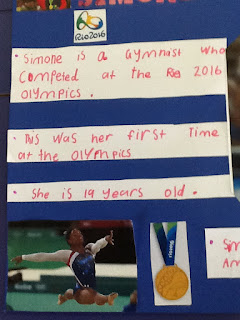 Rio2016
• Simone is a Gymnist who
competed at the Reo 2016
Olympics.
• This was her first Time
at the Olympics
• She is 19 years old.
• Sim
Am